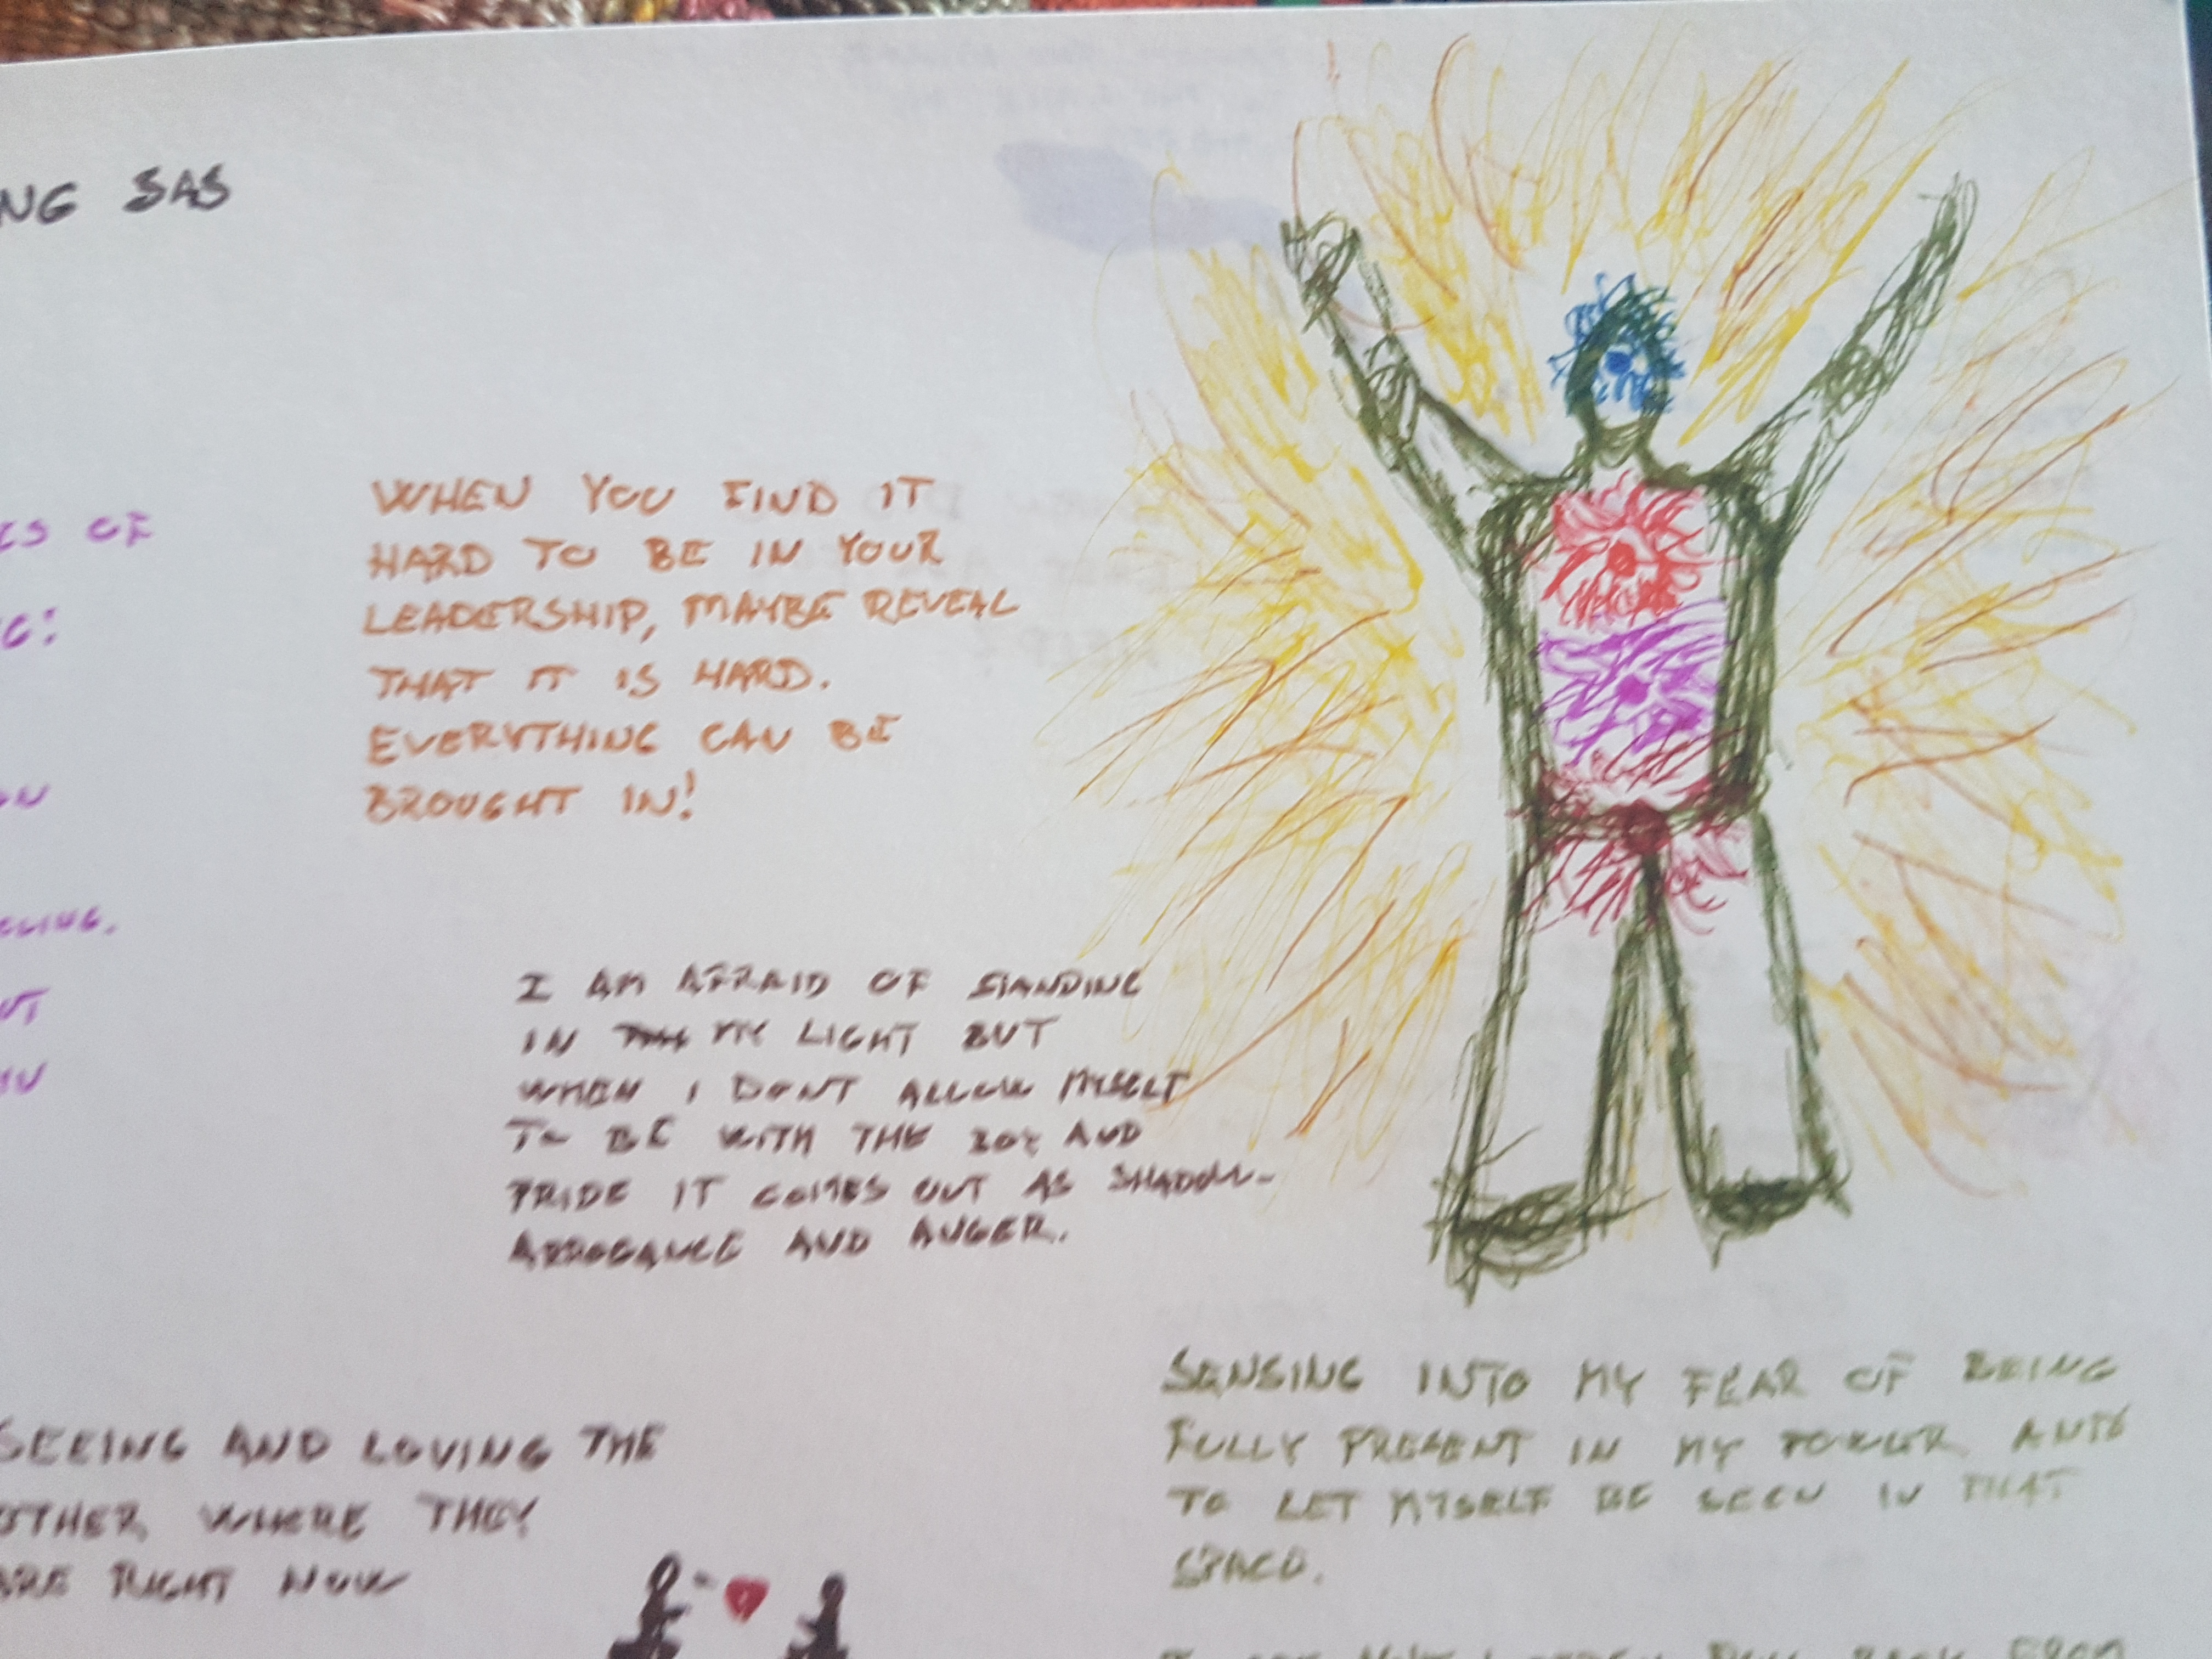 NG SAS
ES OF
G:
ON
LLING.
NT
WHEN YOU FIND IT
HARD TO BE IN YOUR
LEADERSHIP, MAYBE REVEAL
THAT IT IS HARD.
EVERYTHING CAN BE
BROUGHT IN!
I AM AFRAID OF STANDING
IN MY LIGHT BUT
WHEN I DONT ALLOW MYSELF
TO BE WITH THE JOY AND
PRIDE IT COMES OUT AS SHADOW-
ARROGANCE AND ANGER.
SEEING AND LOVING THE
OTHER WHERE THEY
ARE RIGHT NOW
SENSING INTO MY FEAR OF BEING
FULLY PRESENT IN MY POWER AND
TO LET MYSELF BE SEEN IN THAT
SPACE.